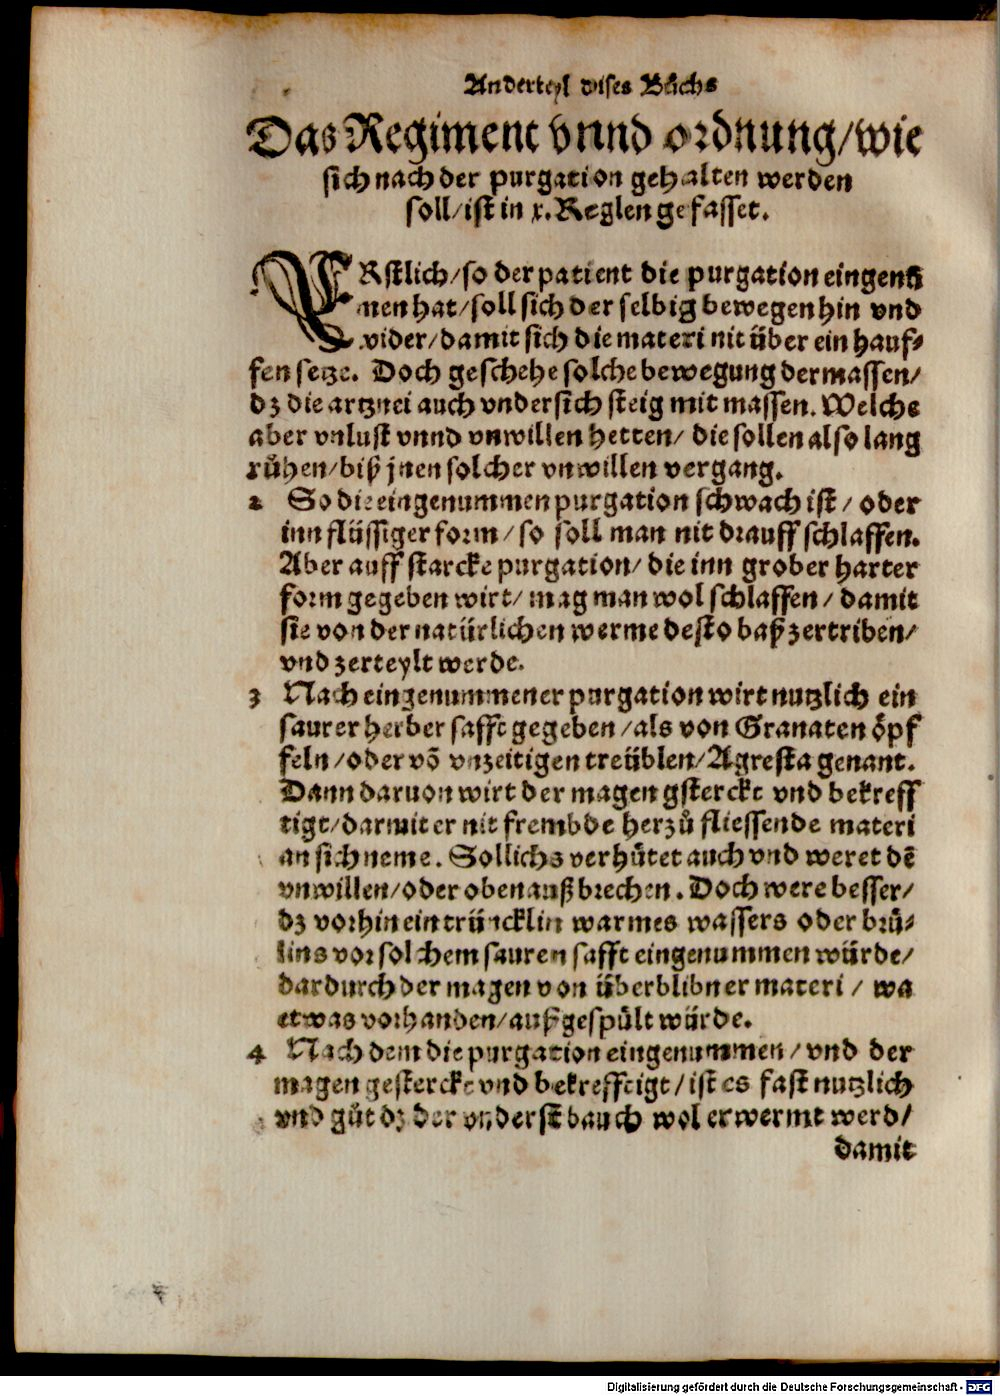 Anderteyl dises Bůchs
Das Regiment vnnd ordnung/wie
sich nach der purgation gehalten werden
soll/ist in x. Reglen gefasset.
ERstlich/so der patient die purgation eingenū
men hat/soll sich der selbig bewegen hin vnd
wider/damit sich die materi nit über ein hauf⸗
fen setze. Doch geschehe solche bewegung dermassen/
dz die artznei auch vndersich steig mit massen. Welche
aber vnlust vnnd vnwillen hetten/ die sollen also lang
růhen/biß jnen solcher vnwillen vergang.
2 So die eingenummen purgation schwach ist/ oder
inn flüssiger form/so soll man nit drauff schlaffen.
Aber auff starcke purgation/ die inn grober harter
form gegeben wirt/ mag man wol schlaffen/ damit
sie von der natürlichen werme desto baß zertriben/
vnd zerteylt werde.
3 Nach eingenummener purgation wirt nutzlich ein
saurer herber safft gegeben/als von Granaten öpf
feln/oder võ vnzeitigen treüblen/Agresta genant.
Dann daruon wirt der magen gsterckt vnd bekreff
tigt/darmit er nit frembde herzů fliessende materi
an sich neme. Sollichs verhütet auch vnd weret dẽ
vnwillen/oder oben auß brechen. Doch were besser/
dz vorhin ein trüncklin warmes wassers oder brü⸗
lins vor solchem sauren safft eingenummen würde/
dardurch der magen von überblibner materi/ wa
etwas vorhanden/außgespült würde.
4 Nach dem die purgation eingenummen/vnd der
magen gesterckt vnd bekrefftigt/ist es fast nutzlich
vnd gůt dz der vnderst bauch wol erwermt werd/
damit
Digitalisierung gefördert durch die Deutsche Forschungsgemeinschaft - DFG